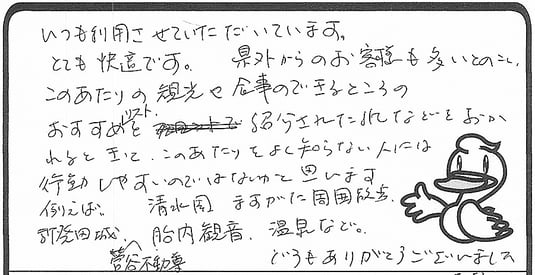 いつも利用させていただいています。
とても快適です。 県外からのお客様も多いとのこと、
このあたりの観光や食事のできるところの
おすすめリスト、を 紹介されたりしてなどをおか
れると きっと、このあたりをよく知らない人には
行動しやすいのではないかと思います
例えば。 清水園 ますがた 周囲
新発田城、 菅谷不動尊 胎内観音、温泉など。
どうもありがとうございました